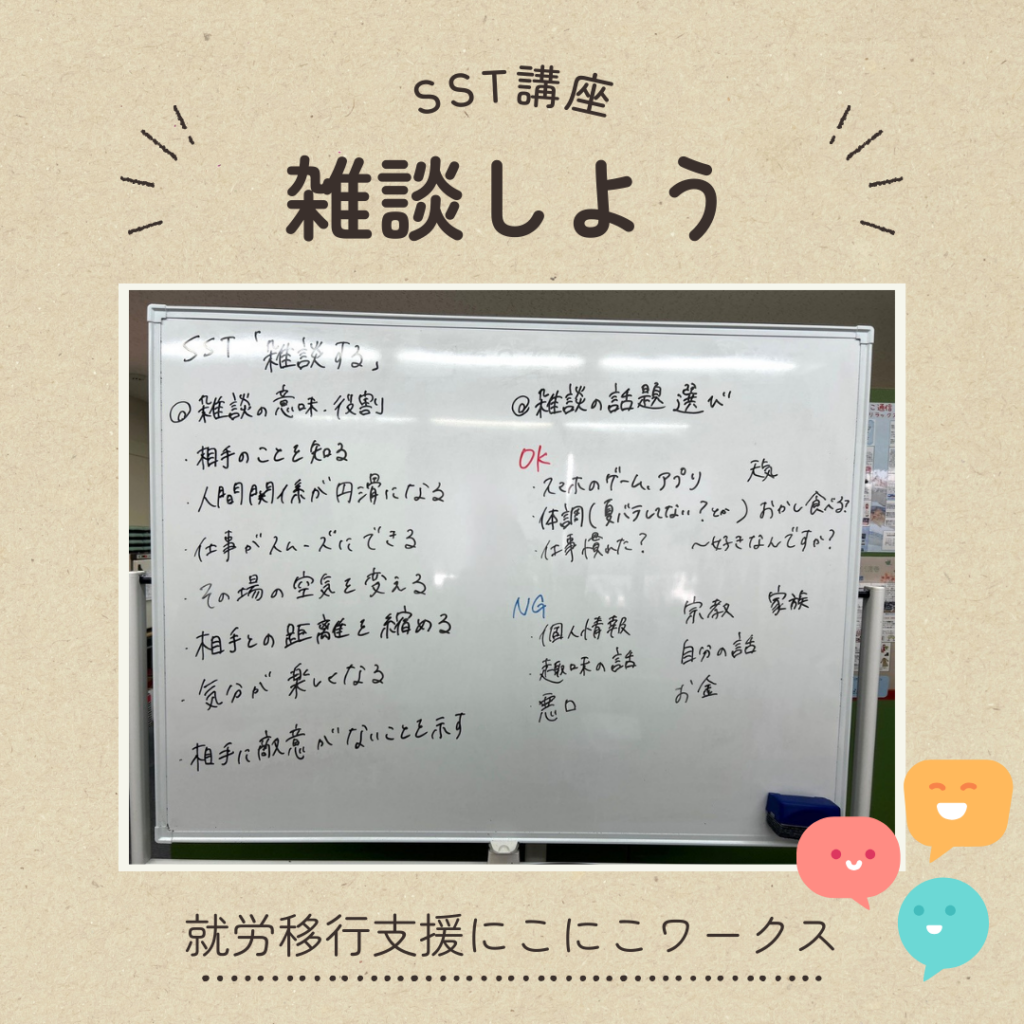 SST講座
雑談しよう
SST「雑談する」
@雑談の意味・役割
・相手のことを知る
・人間関係が円滑になる
・仕事がスムーズにできる
・その場の空気を変える
・相手との距離を縮める
・気分が楽しくなる
・相手に敵意がないことを示す
@雑談の話題選び
OK
・スマホのゲーム、アプリ 天気
・体調(夏バテしてない?とか) おかし食べる?
・仕事慣れた? ~好きなんですか?
NG
・個人情報 宗教 家族
・趣味の話 自分の話
・悪口 お金
就労移行支援にこにこワークス